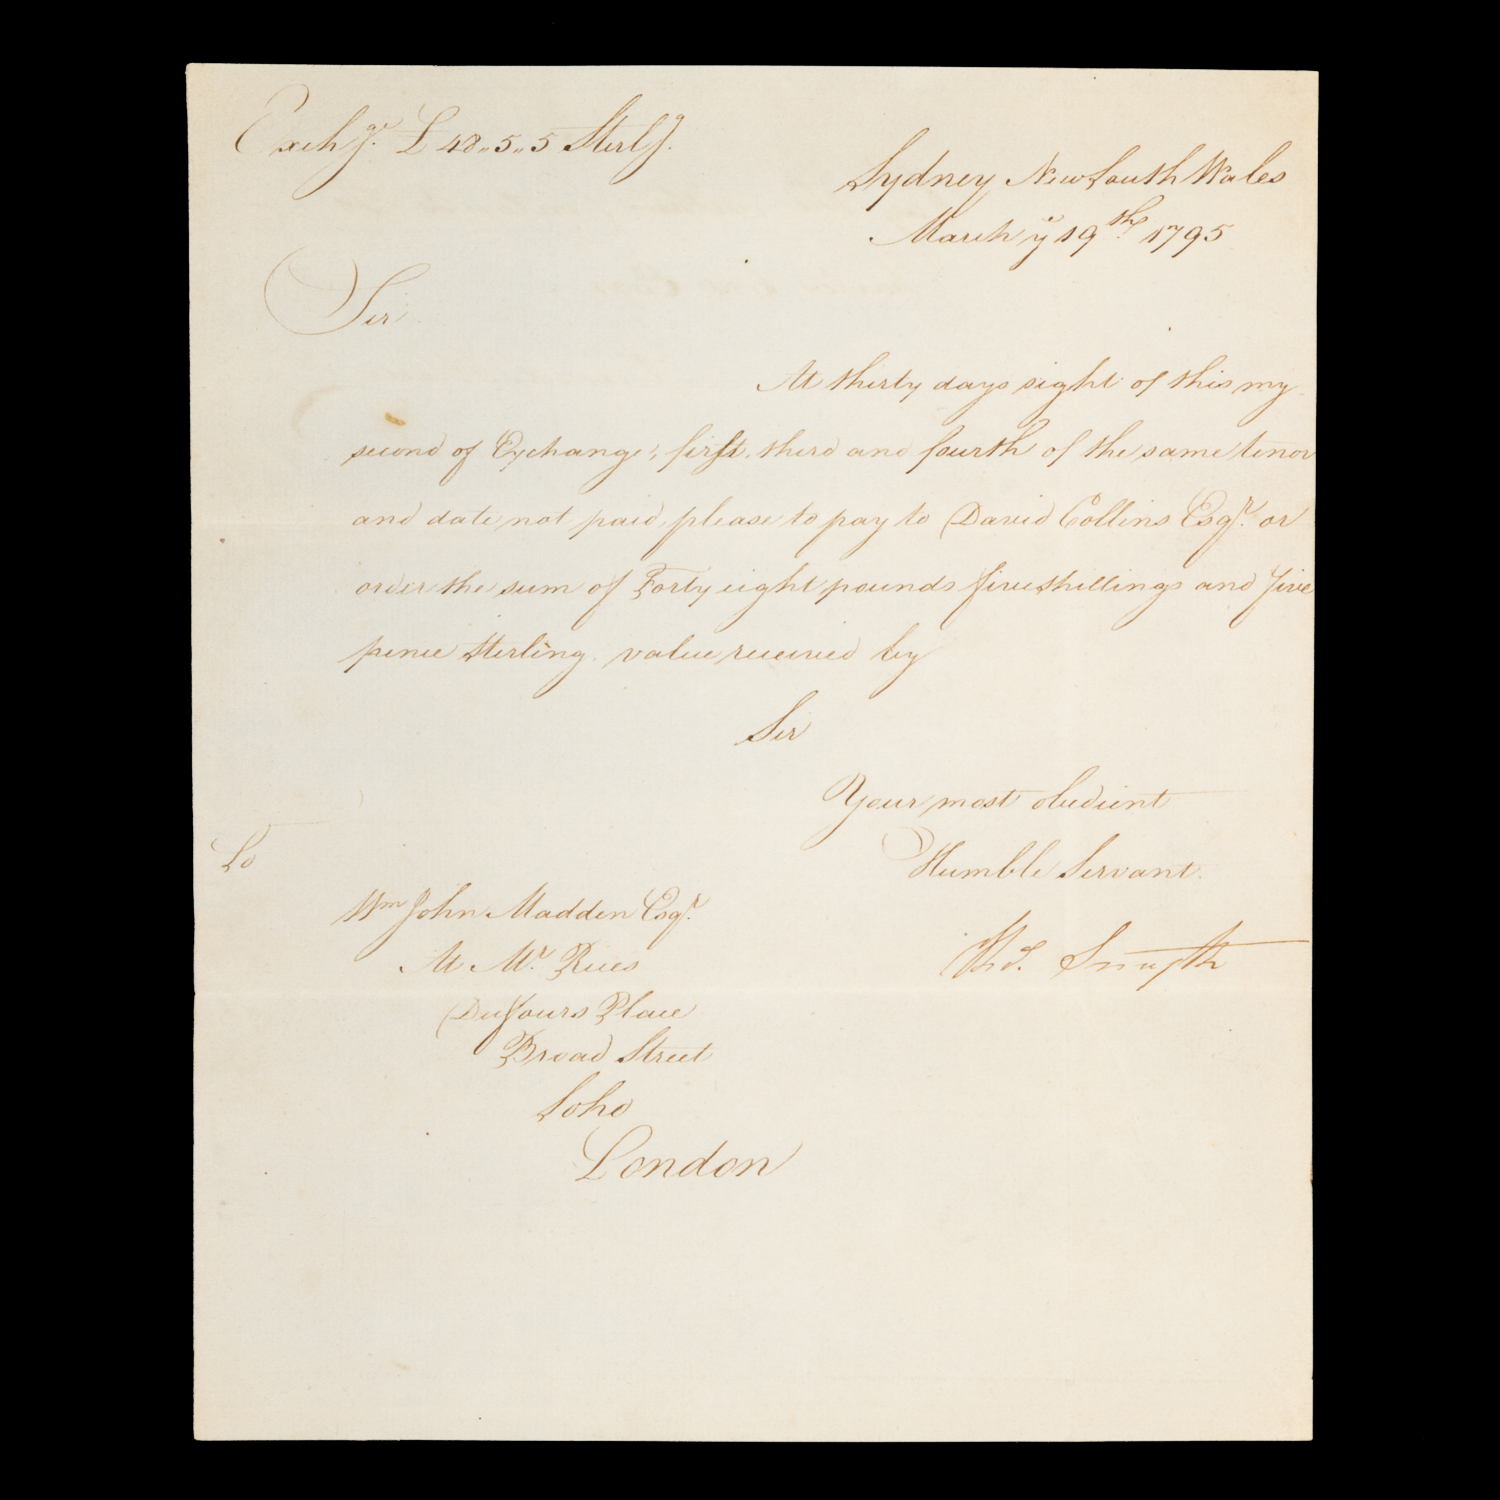 Exchge. £48,,5,,5 Sterlg.
Sydney New South Wales
March ye 19th. 1795
Sir
At thirty days sight of this my
second of Exchange; first, third and fourth of the same tenor
and date not paid, please to pay to David Collins Esqr. or
order the sum of Forty eight pounds five shillings and five
pence Sterling. value received by
Sir
Your most obedient
Humble Servant.
Thos. Smyth
To
Wm John Madden Esqr.
At Mr. Rices
Dufours Place
Broad Street
Soho
London